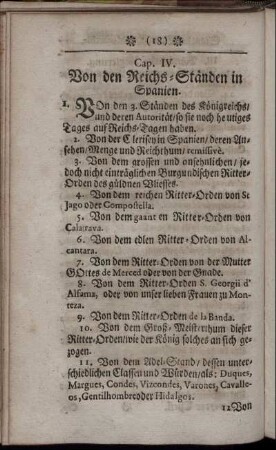 (18)
Cap. IV.
Von den Reichs-Ständen in
Spanien.
1. VOn den 3. Ständen des Königreichs/
und deren Autorität/so sie noch heutiges
Tages auf Reichs-Tagen haben.
2. Von der Clerisey in Spanien/deren An-
sehen/Menge und Reichthum/
3. Von dem grossen und ansehnlichen/ je-
doch nicht einträglichen Burgundischen Ritter-
Orden des güldnen Vliesses.
4. Von dem reichen Ritter-Orden von St
Jago oder Compostella.
5. Von dem en Ritter-Orden von
Calatrava.
6. Von dem edlen Ritter-Orden von Al-
cantara.
7. Von dem Ritter-Orden von der Mutter
GOttes de Merced oder von der Gnade.
8. Von dem Ritter-Orden S. Georgii d'
Alfama, oder von unser lieben Frauen zu Mon-
teza.
9. Von dem Ritter-Orden de la Banda.
10. Von dem Groß-Meisterthum dieser
Ritter-Orden/wie der König solches an sich ge-
zogen.
11. Von dem Adel-Stand/ dessen unter-
schiedlichen Classen und Würden/als: Duques,
Margues, Condes, Vizcondes, Varones, Cavalle-
ros, Gentilhombre oder Hidalgos.
12 Von